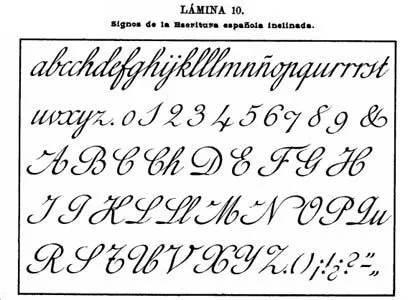 LÁMINA 10.
Signos de la Escritura española inclinada.
abcchdefghijklllmnñopqurrrst
uvxyz. 0 1 2 3 4 5 6 7 8 9 &
A B C Ch D E F G H
I J H L Ll M N O P Qu
R S T U V X Y Z. () ¡! ¿? "- „